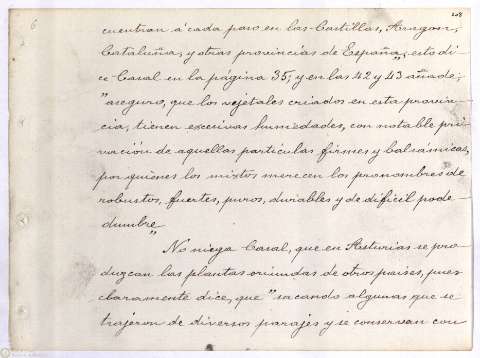 6
208
cuentran á cada paso en las Castillas, Aragon,
Cataluña, y otras provincias de España"; esto di
ce Casal en la página 35; y en las 42 y 43 añade;
"aseguro, que los vejetales criados en esta provin-
cia, tienen excesivas humedades, con notable pri
vación de aquellas particulas firmes y balsámicas,
por quienes los mixtos merecen los pronombres de
robustos, fuertes, puros, durables y de dificil pode
dumbre"
No niega Casal, que en Asturias se pro
duzcan las plantas oriundas de otros paises, pues
claramente dice, que "sacando algunas que se
trajeron de diversos parajes y se conservan con